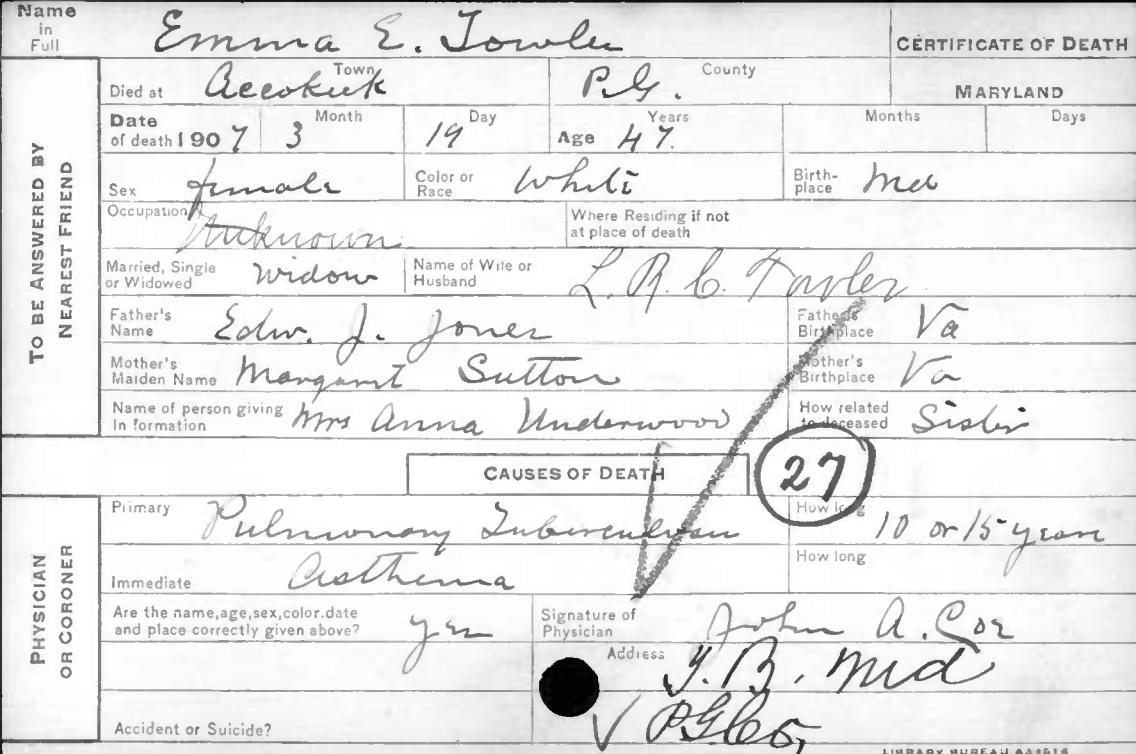 Name in Full Emma E. Towler
CERTIFICATE OF DEATH
TO BE ANSWERED BY NEAREST FRIEND
Died at Accokick Town P.G. County MARYLAND
Date of death 1907 Month 3 Day 19 Age 47 Years Months Days
Sex female Color or Race White Birth-place Md
Occupation Unknown Where Residing if not at place of death
Married, Single or Widowed Widow Name of Wife or Husband L. R. C. Towler
Father's Name Edw. J. Jones Father's Birthplace Va
Mother's Maiden Name Margaret Sutton Mother's Birthplace Va
Name of person giving In formation Mrs Anna Underwood How related to deceased Sister
CAUSES OF DEATH 27
PHYSICIAN OR CORONER
Primary Pulmonary Tuberculosis How long 10 or 15 years
Immediate Asthenia How long
Are the name,age,sex,color.date and place correctly given above? yes Signature of Physician John A. Coe
Address T.B. Md
P G Co,
Accident or Suicide?
LIBRARY BUREAU